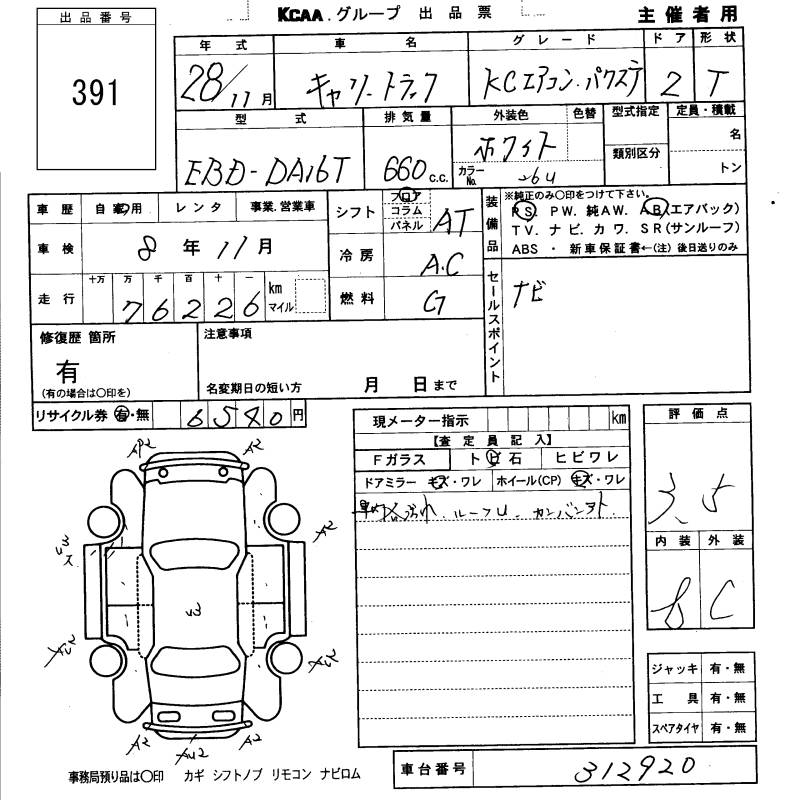 出品番号
391
KCAA.グループ 出品票
主催者用
年式 車名 グレード ドア 形状
28/11月 キャリートラック KCエアコン.パワステ 2 T
型式 排気量 外装色 色替 型式指定 定員・積載
類別区分
EBD-DA16T 660 c.c. ホワイト 名
カラーNo. 26U トン
車歴 自家用 レンタ 事業.営業車
車検 8年11月
走行 十万 万 千 百 十 一
76226 km マイル
シフト フロア コラム パネル AT
冷房 A.C
燃料 G
装備品
※純正のみ〇印をつけて下さい。
PS. PW. 純AW. AB(エアバック)
TV. ナビ. カワ. SR(サンルーフ)
ABS ・ 新車保証書←(注) 後日送りのみ
セールスポイント
ナビ
修復歴 箇所
有
(有の場合は〇印を)
注意事項
名変期日の短い方 月 日まで
リサイクル券 有・無 6540円
現メーター指示 km
【査定員記入】
Fガラス ト ビ 石 ヒビワレ
ドアミラー キズ・ワレ ホイール(CP) キズ・ワレ
ルーフU.
評価点
3.5
内装 外装
B C
ジャッキ 有・無
工具 有・無
スペアタイヤ 有・無
車台番号 312920
A2
A2
A2
A2
A2
事務局預り品は〇印 カギ シフトノブ リモコン ナビロム